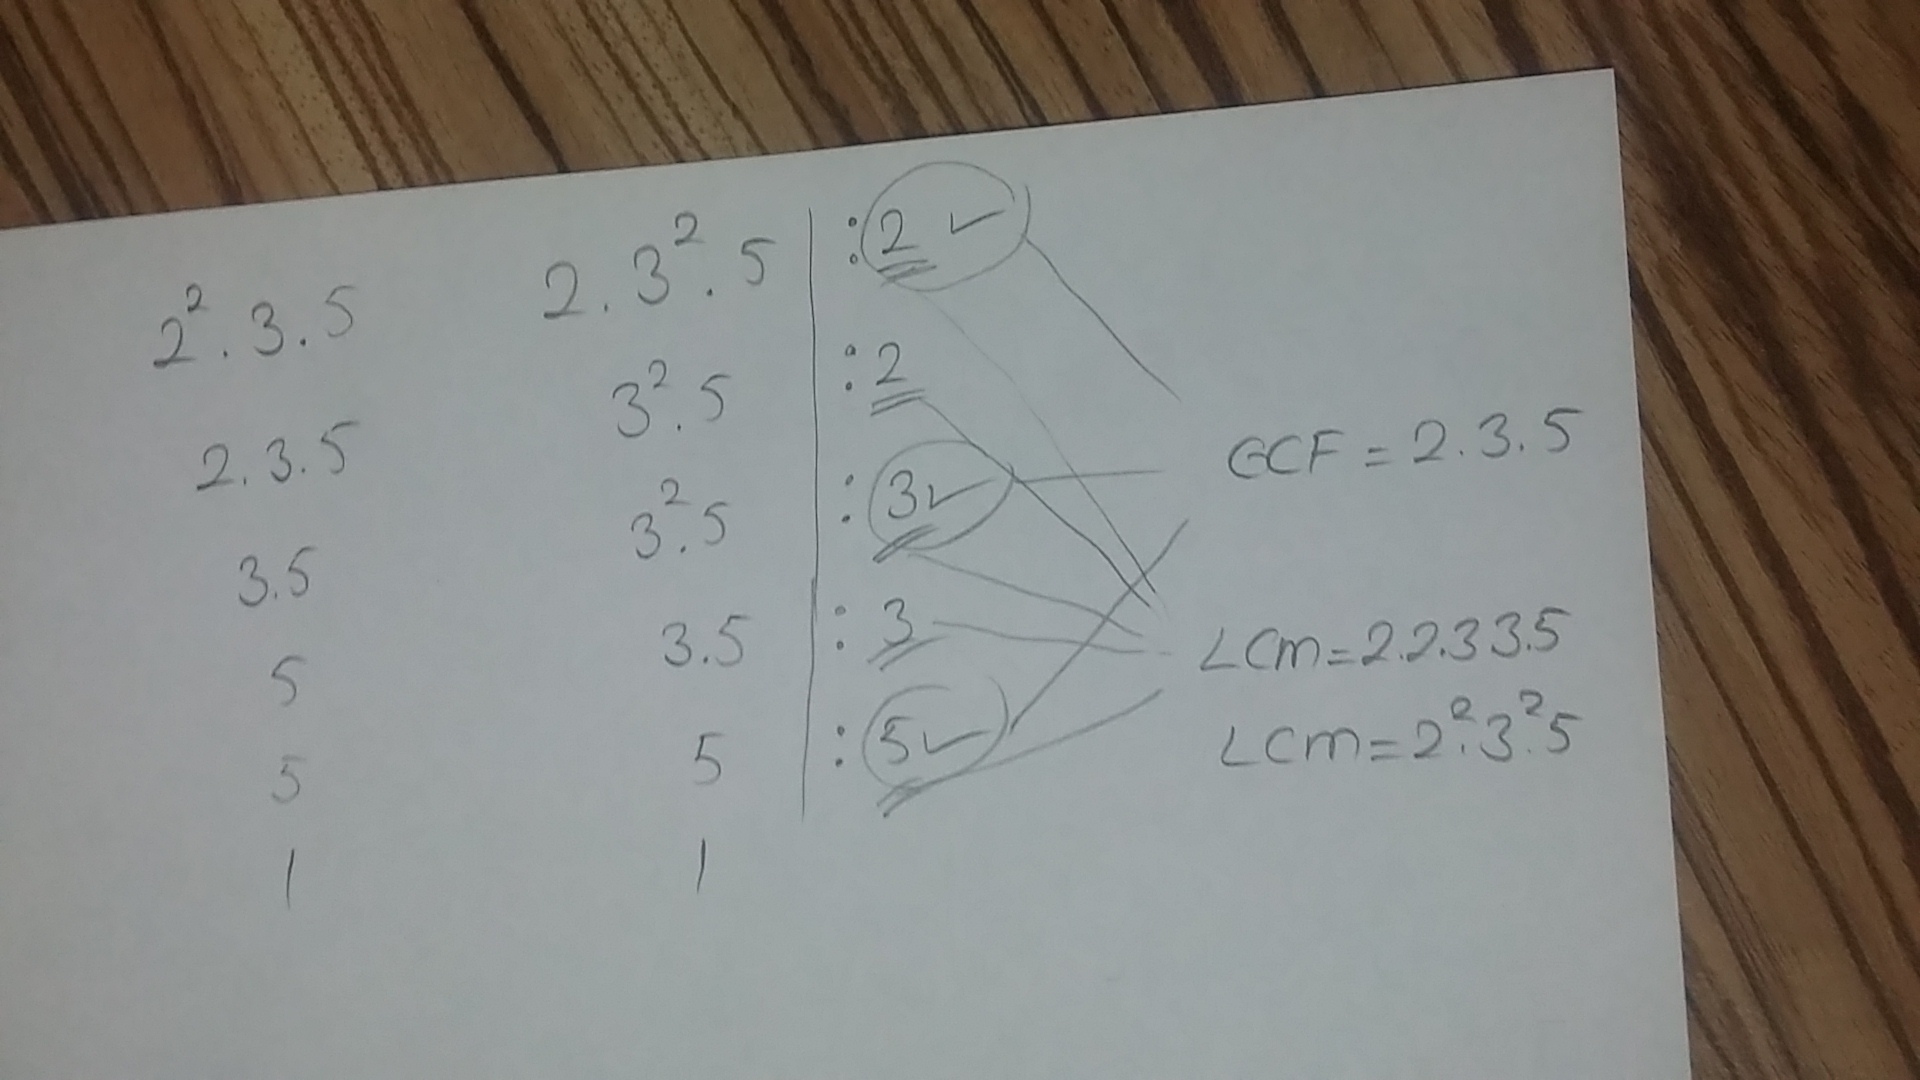 2².3.5 2.3².5 :2 ✓
2.3.5 3².5 :2
3.5 3².5 :3 ✓
5 3.5 :3
5 5 :5 ✓
1 1
GCF = 2.3.5
LCm=2.2.33.5
LCm=2².3².5